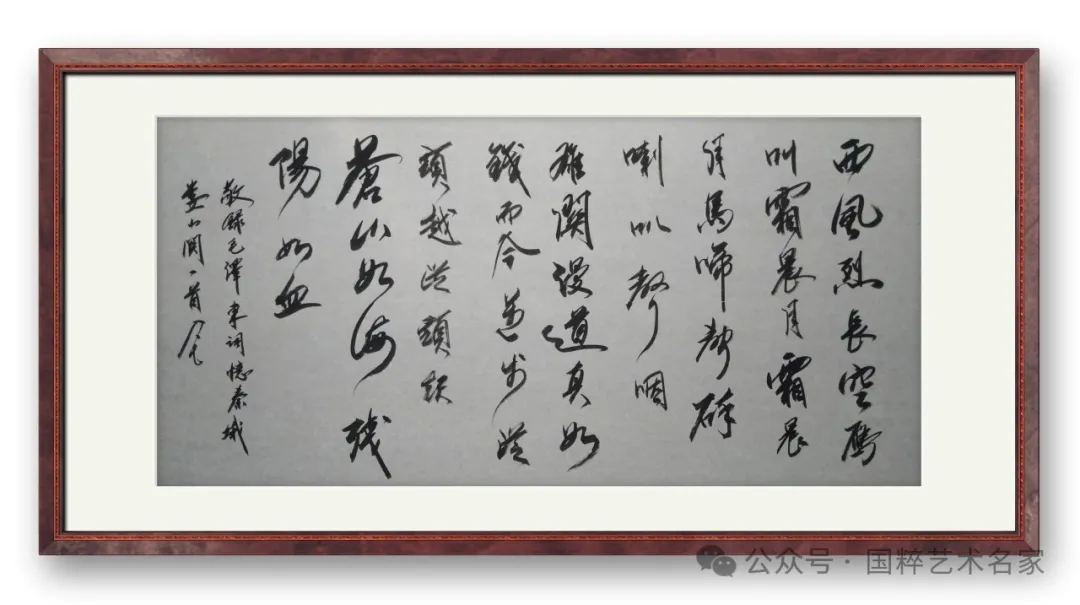 西風烈長空雁
叫霜晨月霜晨
月馬啼聲碎
喇叭聲咽
雄關漫道真如
鐵而今邁步從
頭越從頭越
蒼山如海殘
陽如血
敬録毛澤東詞憶秦娥
婁山関一首
公众号 · 国粹艺术名家